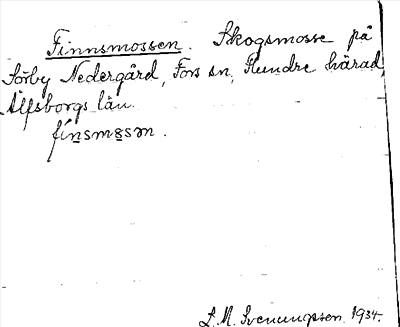 Finnsmossen. Skogsmosse på
Sörby Nedergård, Fors sn, Flundre härad,
Älfsborgs län.
fínsmɵsən.
L. M. Svenungsson 1934.